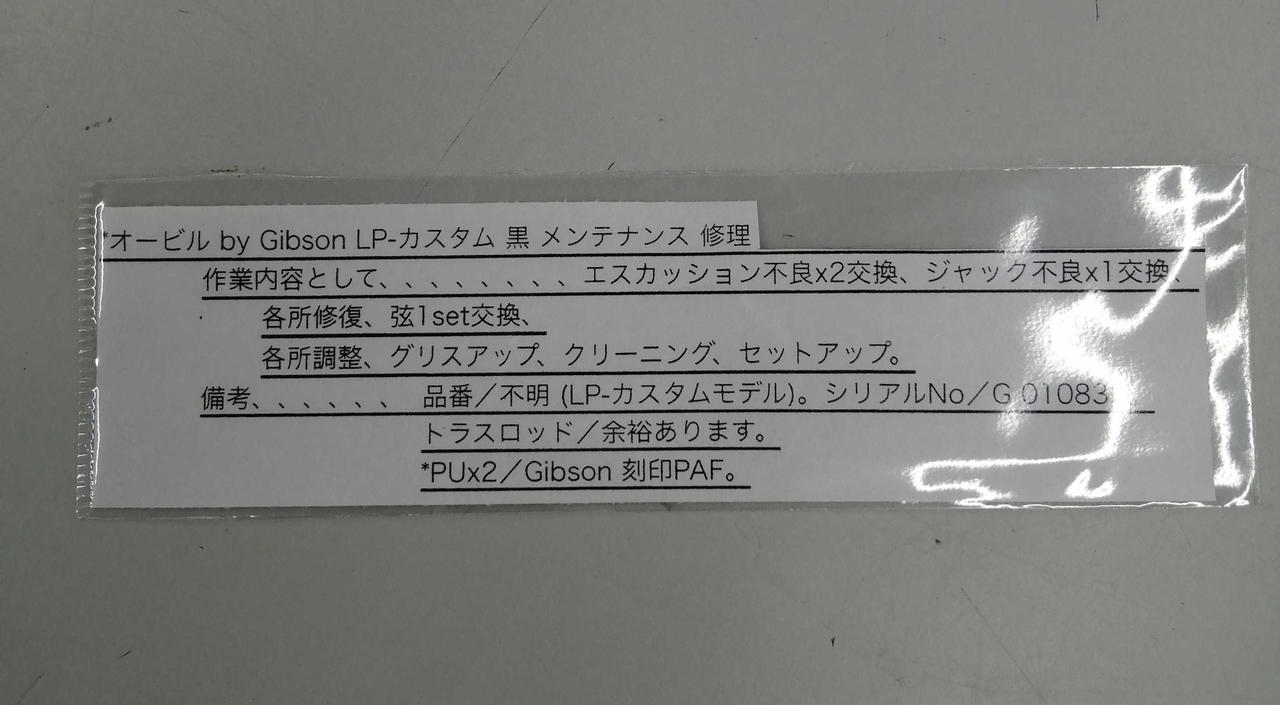 *オービル by Gibson LP-カスタム 黒 メンテナンス 修理
作業内容として、、、、、、、、エスカッション不良x2交換、ジャック不良x1交換、
各所修復、弦1set交換、
各所調整、グリスアップ、クリーニング、セットアップ。
備考、、、、、、 品番／不明 (LP-カスタムモデル)。シリアルNo／G 01083
トラスロッド／余裕あります。
*PUx2／Gibson 刻印PAF。